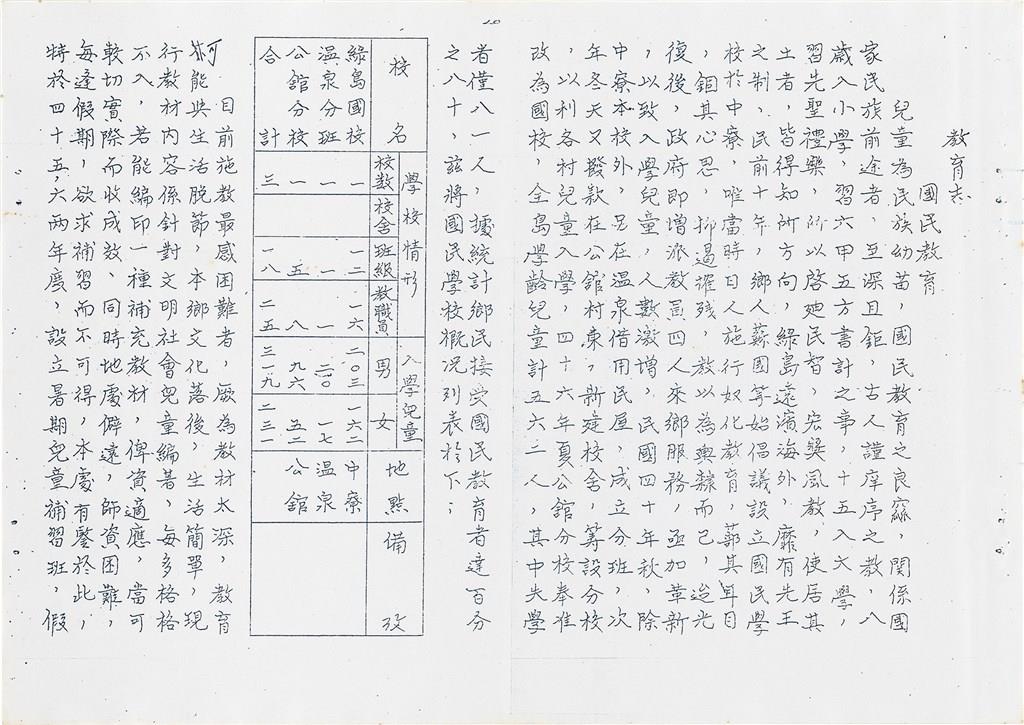 教育志
國民教育
兒童為民族幼苗，國民教育之良窳，關係國
家民族前途者、至深且鉅，古人謹庠序之教，八
歲入小學，習六甲五方書計之事，十五入大學，
習先聖禮樂，所以啓廸民智，宏奬風教，使居其
土者，皆得知所方向，綠島遠濱海外，靡有先王
之制、民前十年，鄉人蘇國等始倡議設立國民學
校於中寮，唯當時日人施行奴化教育，蔀其耳目
，錮其心思，抑遏摧殘，教以為輿隸而已，迨光
復後，政府即增派教員四人來鄉服務，亟加革新
，以致入學兒童，人數激增，民國四十年秋，除
中寮本校外，另在温泉借用民屋，成立分班，次
年冬天又撥款在公館村東，新建校舍，籌設分校
，以利各村兒童入學，四十六年夏公館分校奉准
改為國校，全島學齡兒童計五六二人，其中失學
者僅八一人，據統計鄉民接受國民教育者達百分
之八十，兹將國民學校概況列表於下；
校名 學校情形 入學兒童 地點 備攷
校數 校舍 班級 教職員 男 女
綠島國校 一 一二 一六 二〇三 一六二 中寮
温泉分班 一 一 一 二〇 一七 温泉
公館分校 一 五 八 九六 五二 公館
合計 三 一八 二五 三一九 二三一
目前施教最感困難者，厥為教材太深，教育
你能與生活脫節，本鄉文化落後，生活簡單，現
行教材内容係針對文明社會兒童編著，每多格格
不入，若能編印一種補充教材，俾資適應，當可
較切實際而收成效、同時地處僻遠，師資困難，
每逢假期，欲求補習而不可得，本處有鑒於此，
特於四十五、六兩年度，設立暑期兒童補習班，假